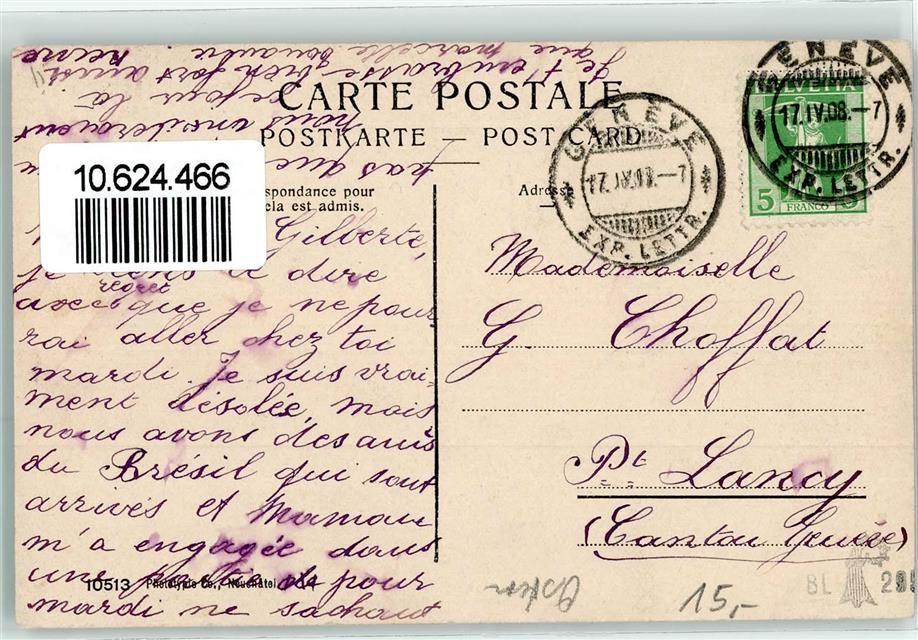 CARTE POSTALE
POSTKARTE — POST CARD
10.624.466
spondance pour
cela est admis.
Adresse
GENÈVE
17.IV.08.—7
EXP. LETTR.
GENÈVE
17.IV.08.—7
EXP. LETTR.
HELVETIA
5 FRANCO 5
Mademoiselle
G. Choffat
Pt. Lancy
(Canton Genève)
Gilberte,
je viens te dire
regret
avec que je ne pour
rai aller chez toi
mardi. Je suis vrai-
ment désolée, mais
nous avons des amis
du Brésil qui sont
arrivés et Maman
m'a engagée dans
une partie pour
mardi ne sachant
pas que
nous
ce jour là
Je t'embrasse bien fort ainsi
que Marcelle
10513 Phototypie Co., Neuchâtel
15,-
BL 295